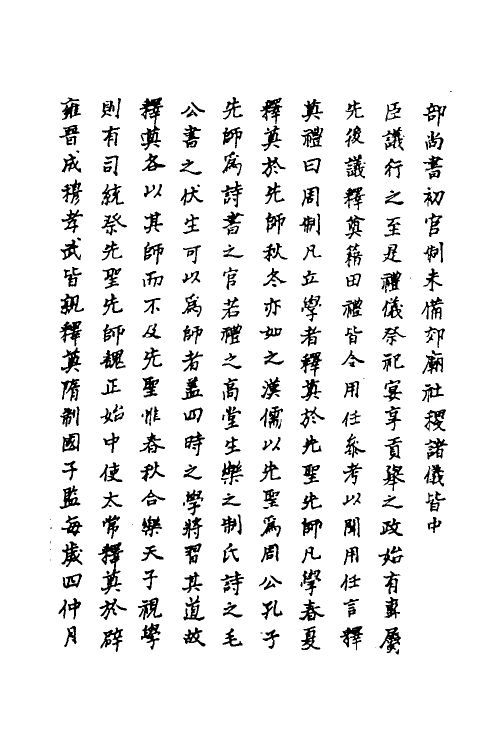 部尚書初官制未備郊廟社稷諸儀皆中
臣議行之至是禮儀祭祀宴享貢舉之政始有專屬
先後議釋奠藉田禮皆令用任叅考以聞用任言釋
奠禮曰周制凡立學者釋奠於先聖先師凡學春夏
釋奠於先師秋冬亦如之漢儒以先聖爲周公孔子
先師爲詩書之官若禮之高堂生樂之制氏詩之毛
公書之伏生可以爲師者蓋四時之學將習其道故
釋奠各以其師而不及先聖惟春秋合樂天子視學
則有司統祭先聖先師魏正始中使太常釋奠於辟
雍晉成穆孝武皆親釋奠隋制國子監每歲四仲月